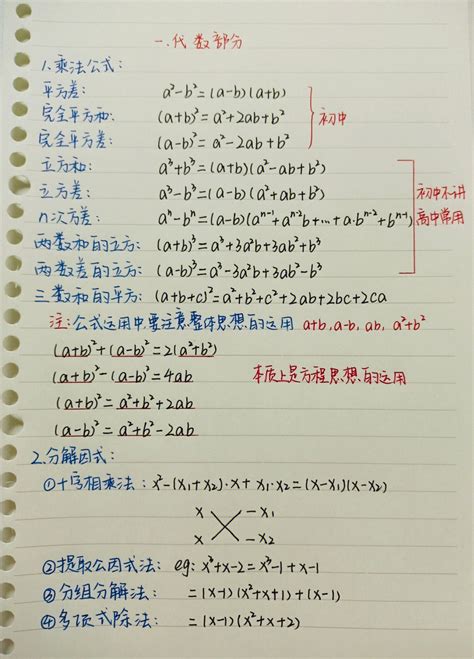 一.代数部分
1.乘法公式:
平方差: a²-b²=(a-b)(a+b)
完全平方和: (a+b)²=a²+2ab+b² 初中
完全平方差: (a-b)²=a²-2ab+b²
立方和: a³+b³=(a+b)(a²-ab+b²)
立方差: a³-b³=(a-b)(a²+ab+b²) 初中不讲
n次方差: aⁿ-bⁿ=(a-b)(aⁿ⁻¹+aⁿ⁻²b+…+a·bⁿ⁻²+bⁿ⁻¹) 高中常用
两数和的立方: (a+b)³=a³+3a²b+3ab²+b³
两数差的立方: (a-b)³=a³-3a²b+3ab²-b³
三数和的平方: (a+b+c)²=a²+b²+c²+2ab+2bc+2ca
注:公式运用中要注意整体思想的运用 a+b,a-b,ab,a²+b²
(a+b)²+(a-b)²=2(a²+b²)
(a+b)²-(a-b)²=4ab 本质上是方程思想的运用
(a+b)²=a²+b²+2ab
(a-b)²=a²+b²-2ab
2.分解因式:
①十字相乘法: x²-(x₁+x₂)·x+x₁·x₂=(x-x₁)(x-x₂)
x -x₁
x -x₂
②提取公因式法: eg: x³+x-2=x³-1+x-1
③分组分解法: =(x-1)(x²+x+1)+(x-1)
④多项式除法: =(x-1)(x²+x+2)